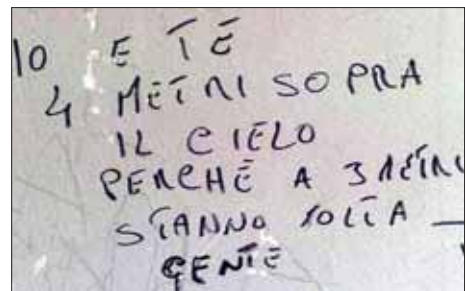 IO E TE
4 METRI SOPRA
IL CIELO
PERCHÈ A 3 METRI
STANNO TOLTA
GENTE